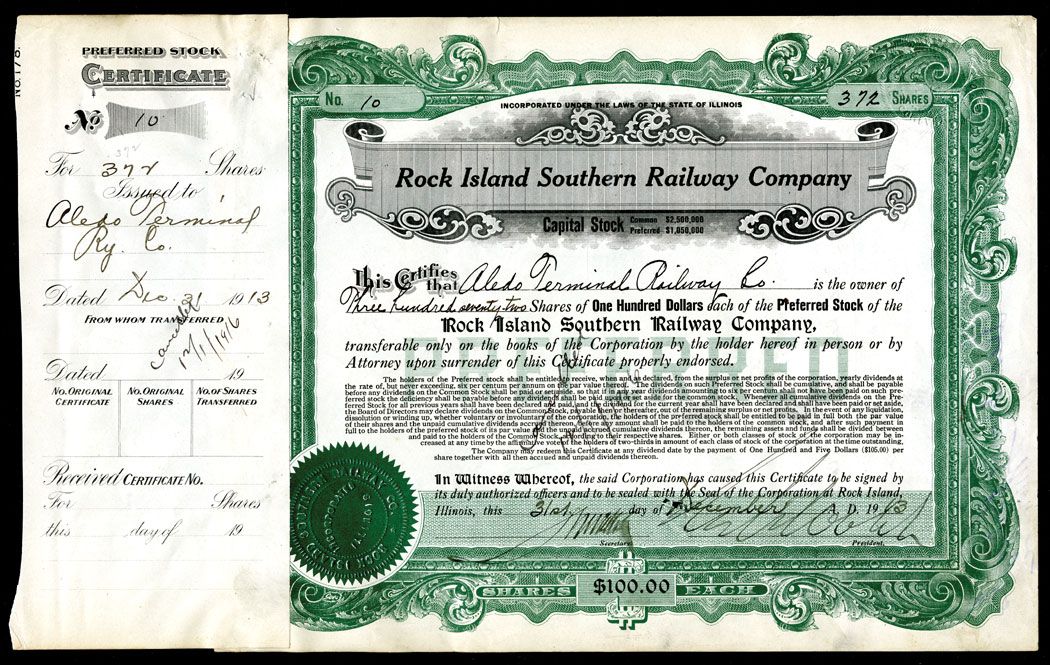 No. 178.
PREFERRED STOCK
CERTIFICATE
No 10
372
For 372 Shares
Issued to
Aledo Terminal
Ry. Co.
Dated Dec 31 1913
FROM WHOM TRANSFERRED
Cancelled
12/1/1916
Dated 19
No. ORIGINAL CERTIFICATE
No. ORIGINAL SHARES
No. OF SHARES TRANSFERRED
Received CERTIFICATE No.
For Shares
this day of 19
No. 10
INCORPORATED UNDER THE LAWS OF THE STATE OF ILLINOIS
372 SHARES
Rock Island Southern Railway Company
Capital Stock Common $2,500,000
Preferred $1,050,000
This Certifies that Aledo Terminal Railway Co. is the owner of
Three hundred seventy two Shares of One Hundred Dollars each of the Preferred Stock of the
Rock Island Southern Railway Company,
transferable only on the books of the Corporation by the holder hereof in person or by
Attorney upon surrender of this Certificate properly endorsed.
PREFERRED
The holders of the Preferred stock shall be entitled to receive, when and as declared, from the surplus or net profits of the corporation, yearly dividends at
the rate of, but never exceeding, six per centum per annum on the par value thereof. The dividends on such Preferred Stock shall be cumulative, and shall be payable
before any dividends on the Common Stock shall be paid or set aside, so that if in any year dividends amounting to six per centum shall not have been paid on such pre-
ferred stock the deficiency shall be payable before any dividends shall be paid upon or set aside for the common stock. Whenever all cumulative dividends on the Pre-
ferred Stock for all previous years shall have been declared and paid, and the dividend for the current year shall have been declared and shall have been paid or set aside,
the Board of Directors may declare dividends on the Common Stock, payable then or thereafter, out of the remaining surplus or net profits. In the event of any liquidation,
dissolution or winding up, whether voluntary or involuntary of the corporation, the holders of the preferred stock shall be entitled to be paid in full both the par value
of their shares and the unpaid cumulative dividends accrued thereon, before any amount shall be paid to the holders of the common stock, and after such payment in
full to the holders of the preferred stock of its par value and the unpaid accrued cumulative dividends thereon, the remaining assets and funds shall be divided between
and paid to the holders of the Common Stock, according to their respective shares. Either or both classes of stock of the corporation may be in-
creased at any time by the affirmative vote of the holders of two-thirds in amount of each class of stock of the corporation at the time outstanding.
The Company may redeem this Certificate at any dividend date by the payment of One Hundred and Five Dollars ($105.00) per
share together with all then accrued and unpaid dividends thereon.
In Witness Whereof, the said Corporation has caused this Certificate to be signed by
its duly authorized officers and to be sealed with the Seal of the Corporation at Rock Island,
Illinois, this 31st day of December A. D. 1913
Secretary.
President.
$100.00
SHARES EACH